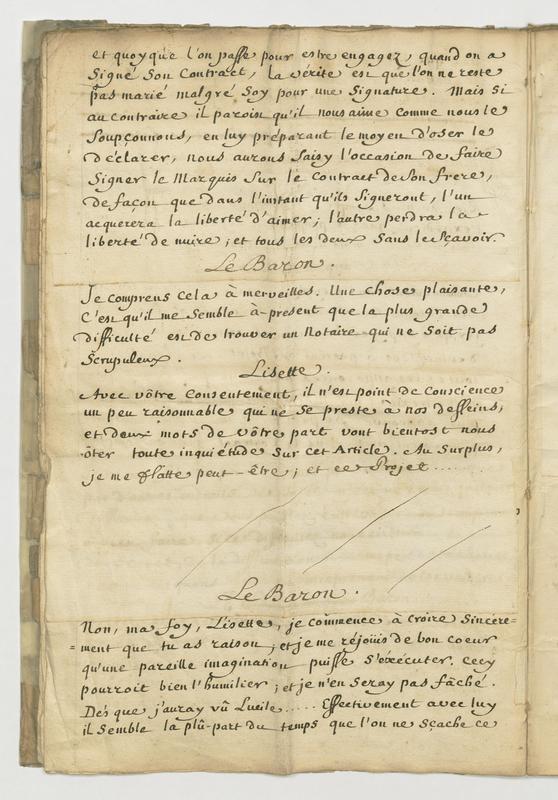 et quoyque l'on passe pour estre engagez, quand on a
Signé Son Contract, la vérité est que l'on ne reste
pas marié malgré Soy pour une Signature. Mais si
au contraire il paroist qu'il nous aime comme nous le
Soupçonnons, en luy préparant le moyen d'oser le
déclarer, nous aurons Saisy l'occasion de faire
Signer le Marquis Sur le Contract de Son frere,
de façon que dans l'instant qu'ils Signeront, l'un
acquerera la liberté d'aimer; l'autre perdra la
liberté de nuire; et tous les deux Sans le Sçavoir.
Le Baron.
Je comprens cela à merveilles. Une chose plaisante,
C'est qu'il me Semble à-present que la plus grande
difficulté est de trouver un Notaire qui ne Soit pas
Scrupuleux.
Lisette.
Avec vôtre Consentement, il n'est point de Conscience
un peu raisonnable qui ne Se preste à nos desseins,
et deux mots de vôtre part vont bientost nous
ôter toute inquiétude Sur cet Article. Au Surplus,
je me flatte peut-être; et ce Projet....
Le Baron.
Non, ma foy, Lisette, je commence à croire Sincere=
=ment que tu as raison; et je me réjoüis de bon coeur
qu'une pareille imagination puisse S'éxécuter. Cecy
pourroit bien l'humilier; et je n'en Seray pas fâché.
Dés que j'auray vû Lucile..... Effectivement avec luy
il Semble la plû-part du temps que l'on ne Sçache ce